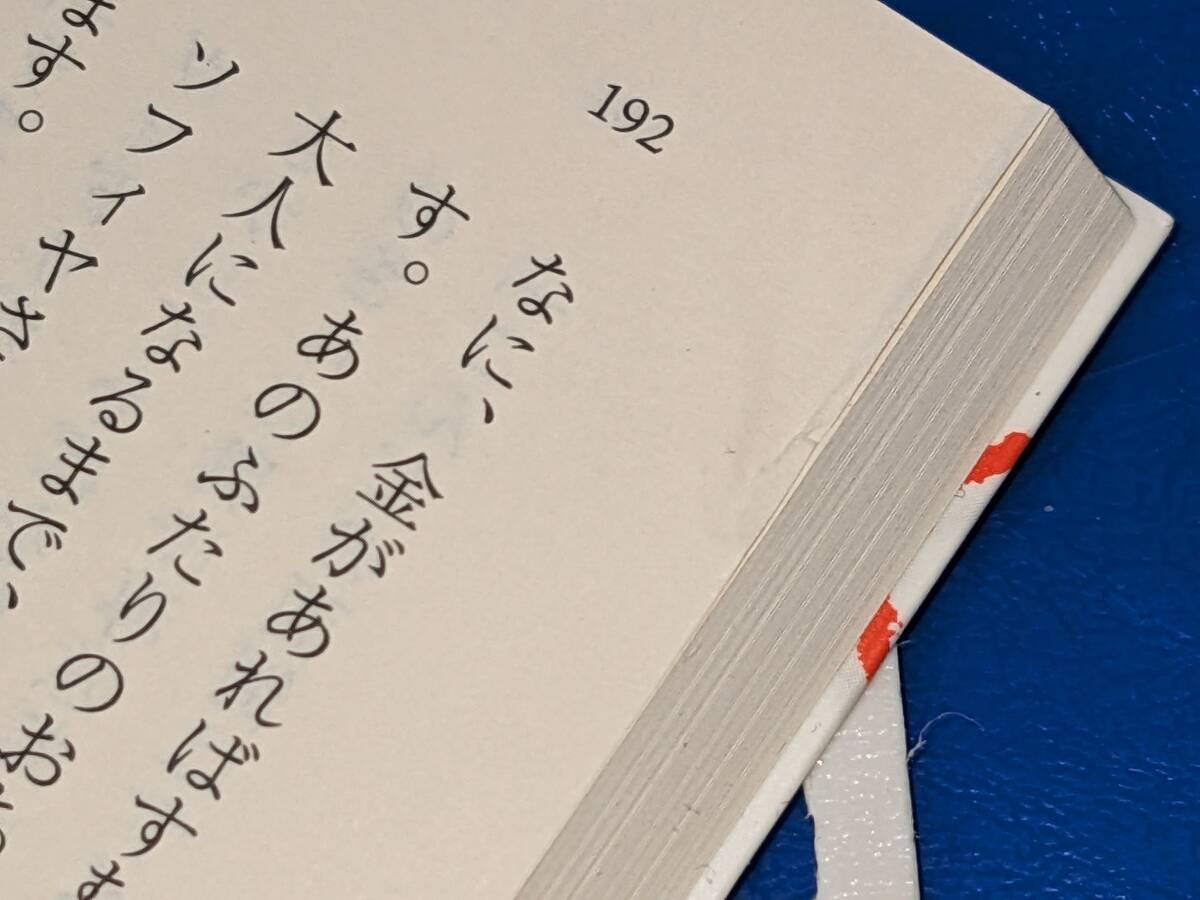 192
なに、金があればす
す。あのふたりのお
大人になるまで、
ソフィヤ
ます。